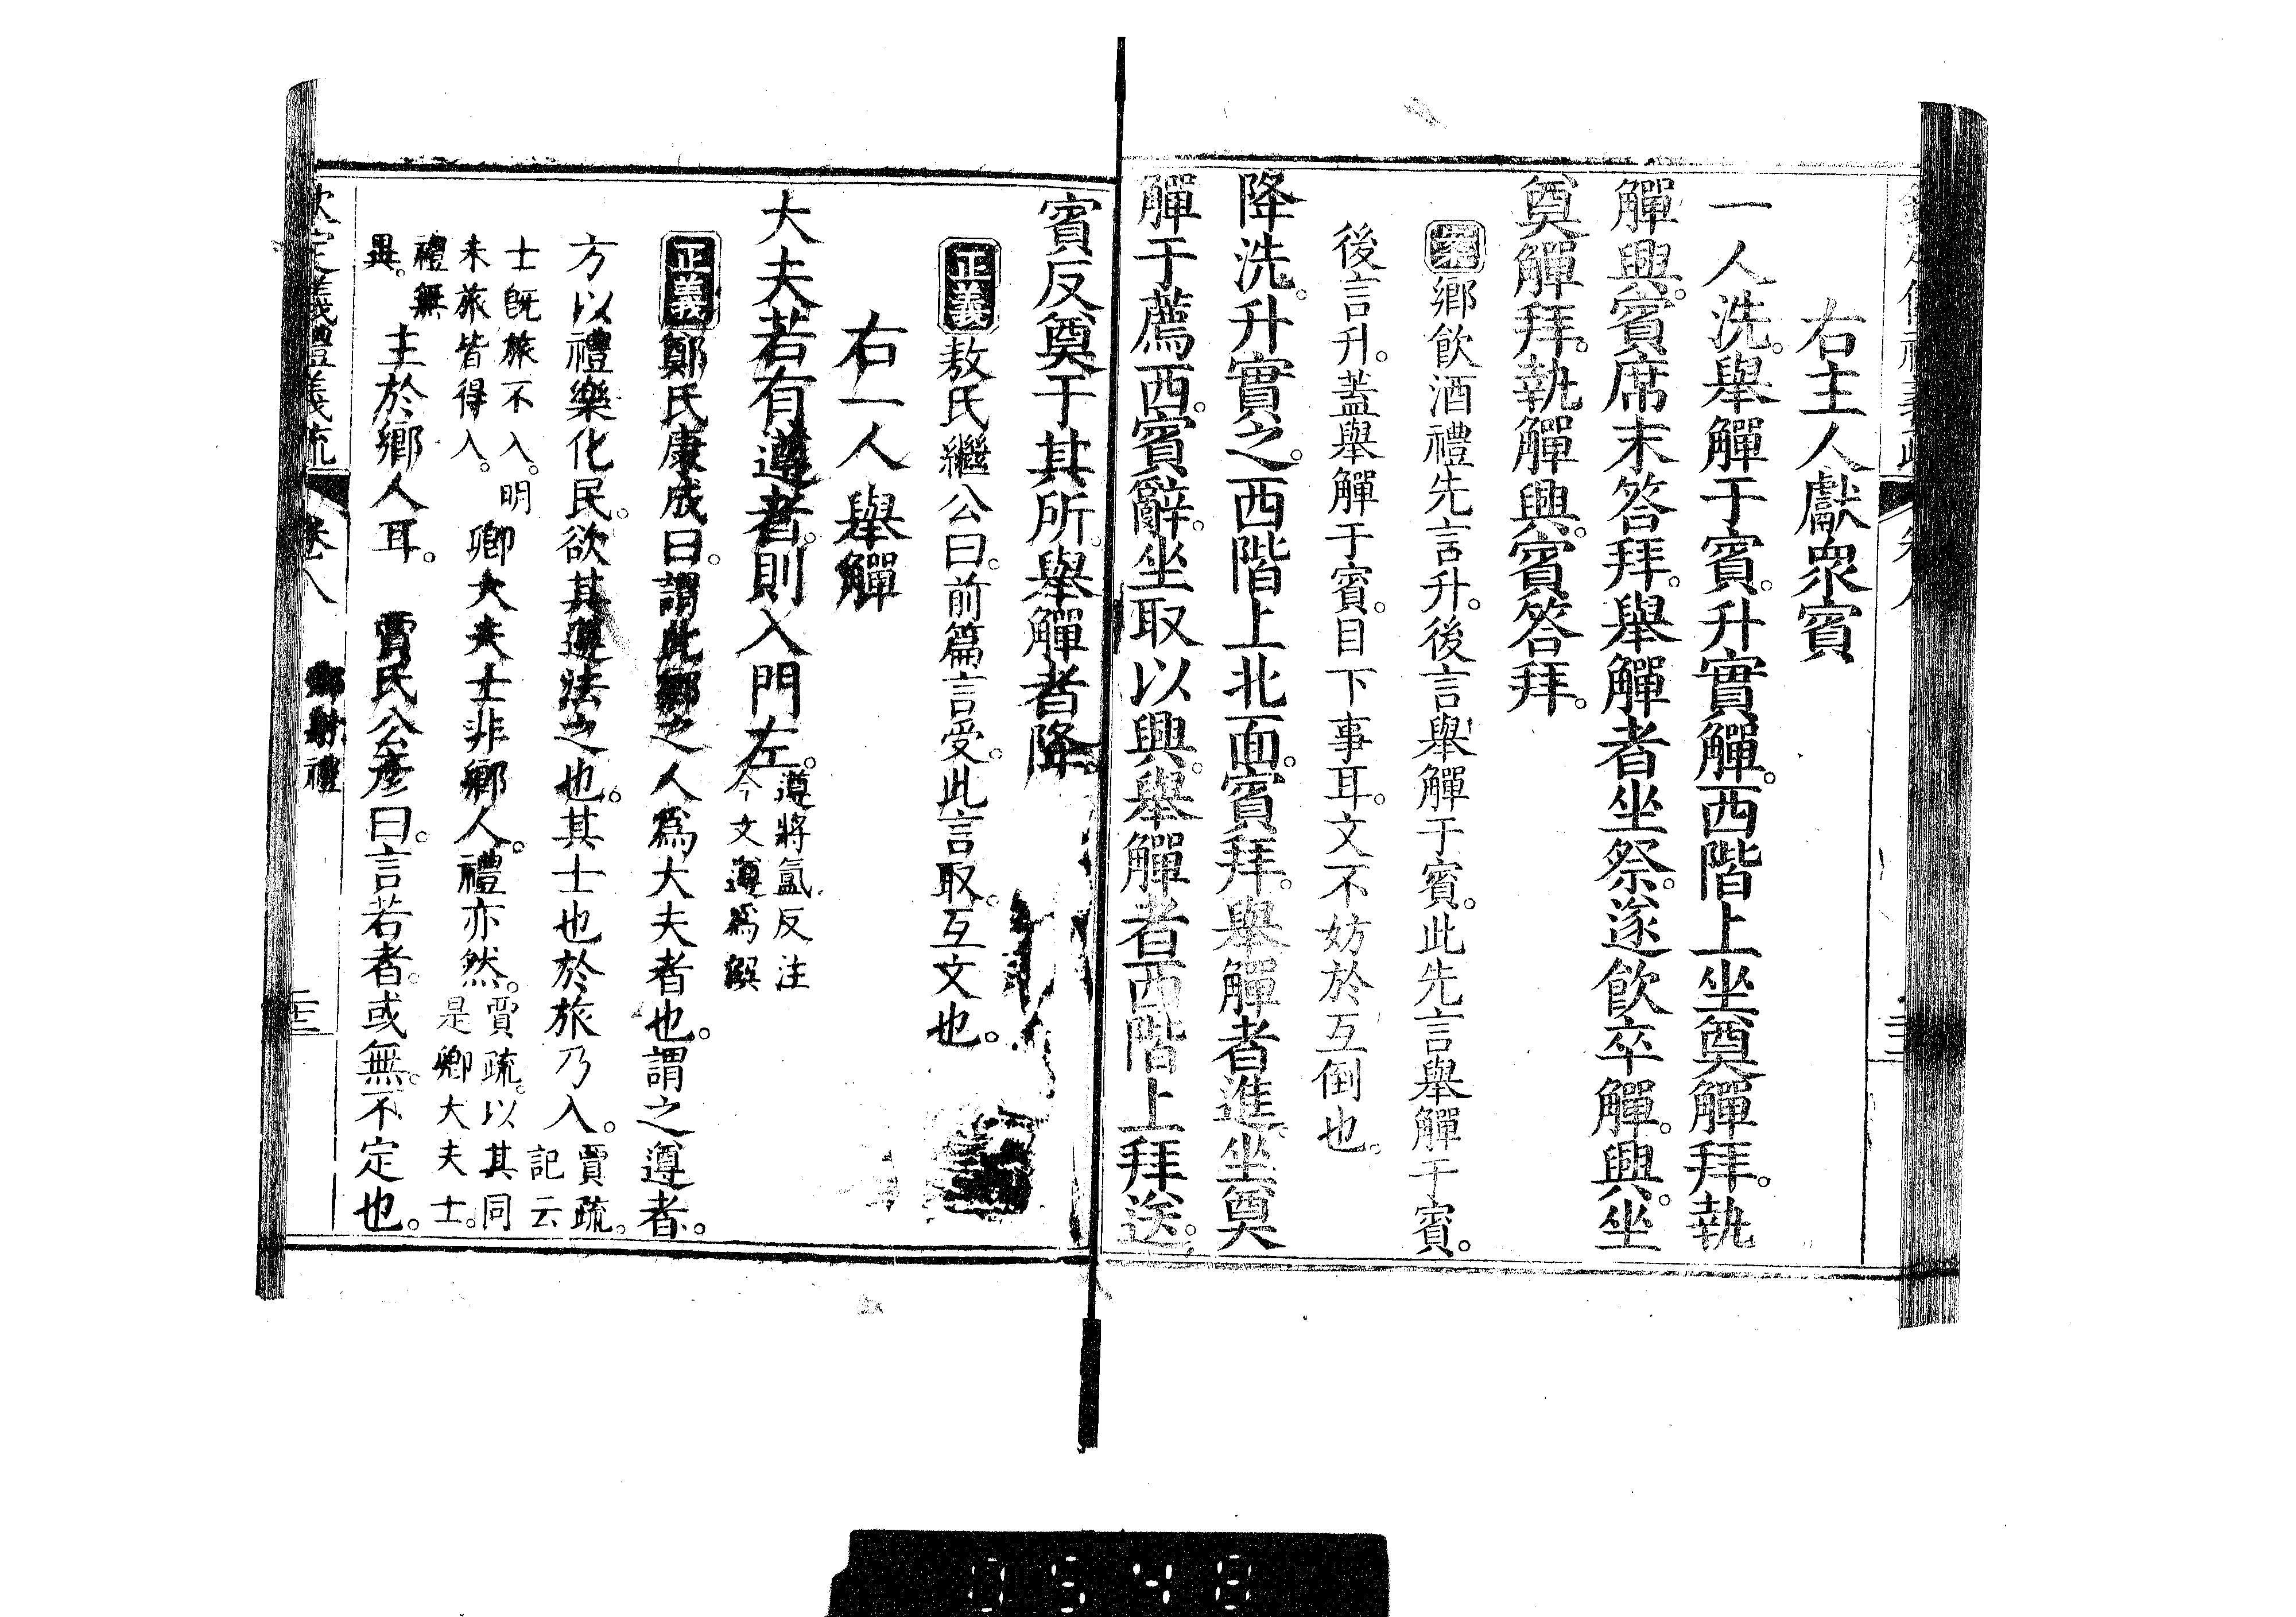 右主人獻衆賓
一人洗。舉觶于賓。升實觶。西階上坐奠觶拜。執
觶興。賓席末答拜。舉觶者坐祭。遂飲卒觶。興。坐
奠觶拜。執觶興。賓答拜。
案鄉飲酒禮先言升。後言舉觶于賓。此先言舉觶于賓。
後言升。蓋舉觶于賓。目下事耳。文不妨於互倒也。
降洗。升實之。西階上北面。賓拜。舉觶者進。坐奠
觶于薦西。賓辭。坐取以興。舉觶者西階上拜送。
賓反奠于其所。舉觶者降。
正義敖氏繼公曰。前篇言受。此言取。互文也。
右一人舉觶
大夫若有遵者。則入門左。遵將氳反注
今文遵爲僎
正義鄭氏康成曰。謂此鄉之人爲大夫者也。謂之遵者。
方以禮樂化民。欲其遵法之也。其士也於旅乃入。賈疏。
記云
士旣旅不入。明
未旅皆得入。卿大夫士非鄉人。禮亦然。賈疏。以其同
是卿大夫士。
禮無
異。主於鄉人耳。 賈氏公彥曰。言若者。或無。不定也。
欽定義禮義疏 卷八 鄉射禮